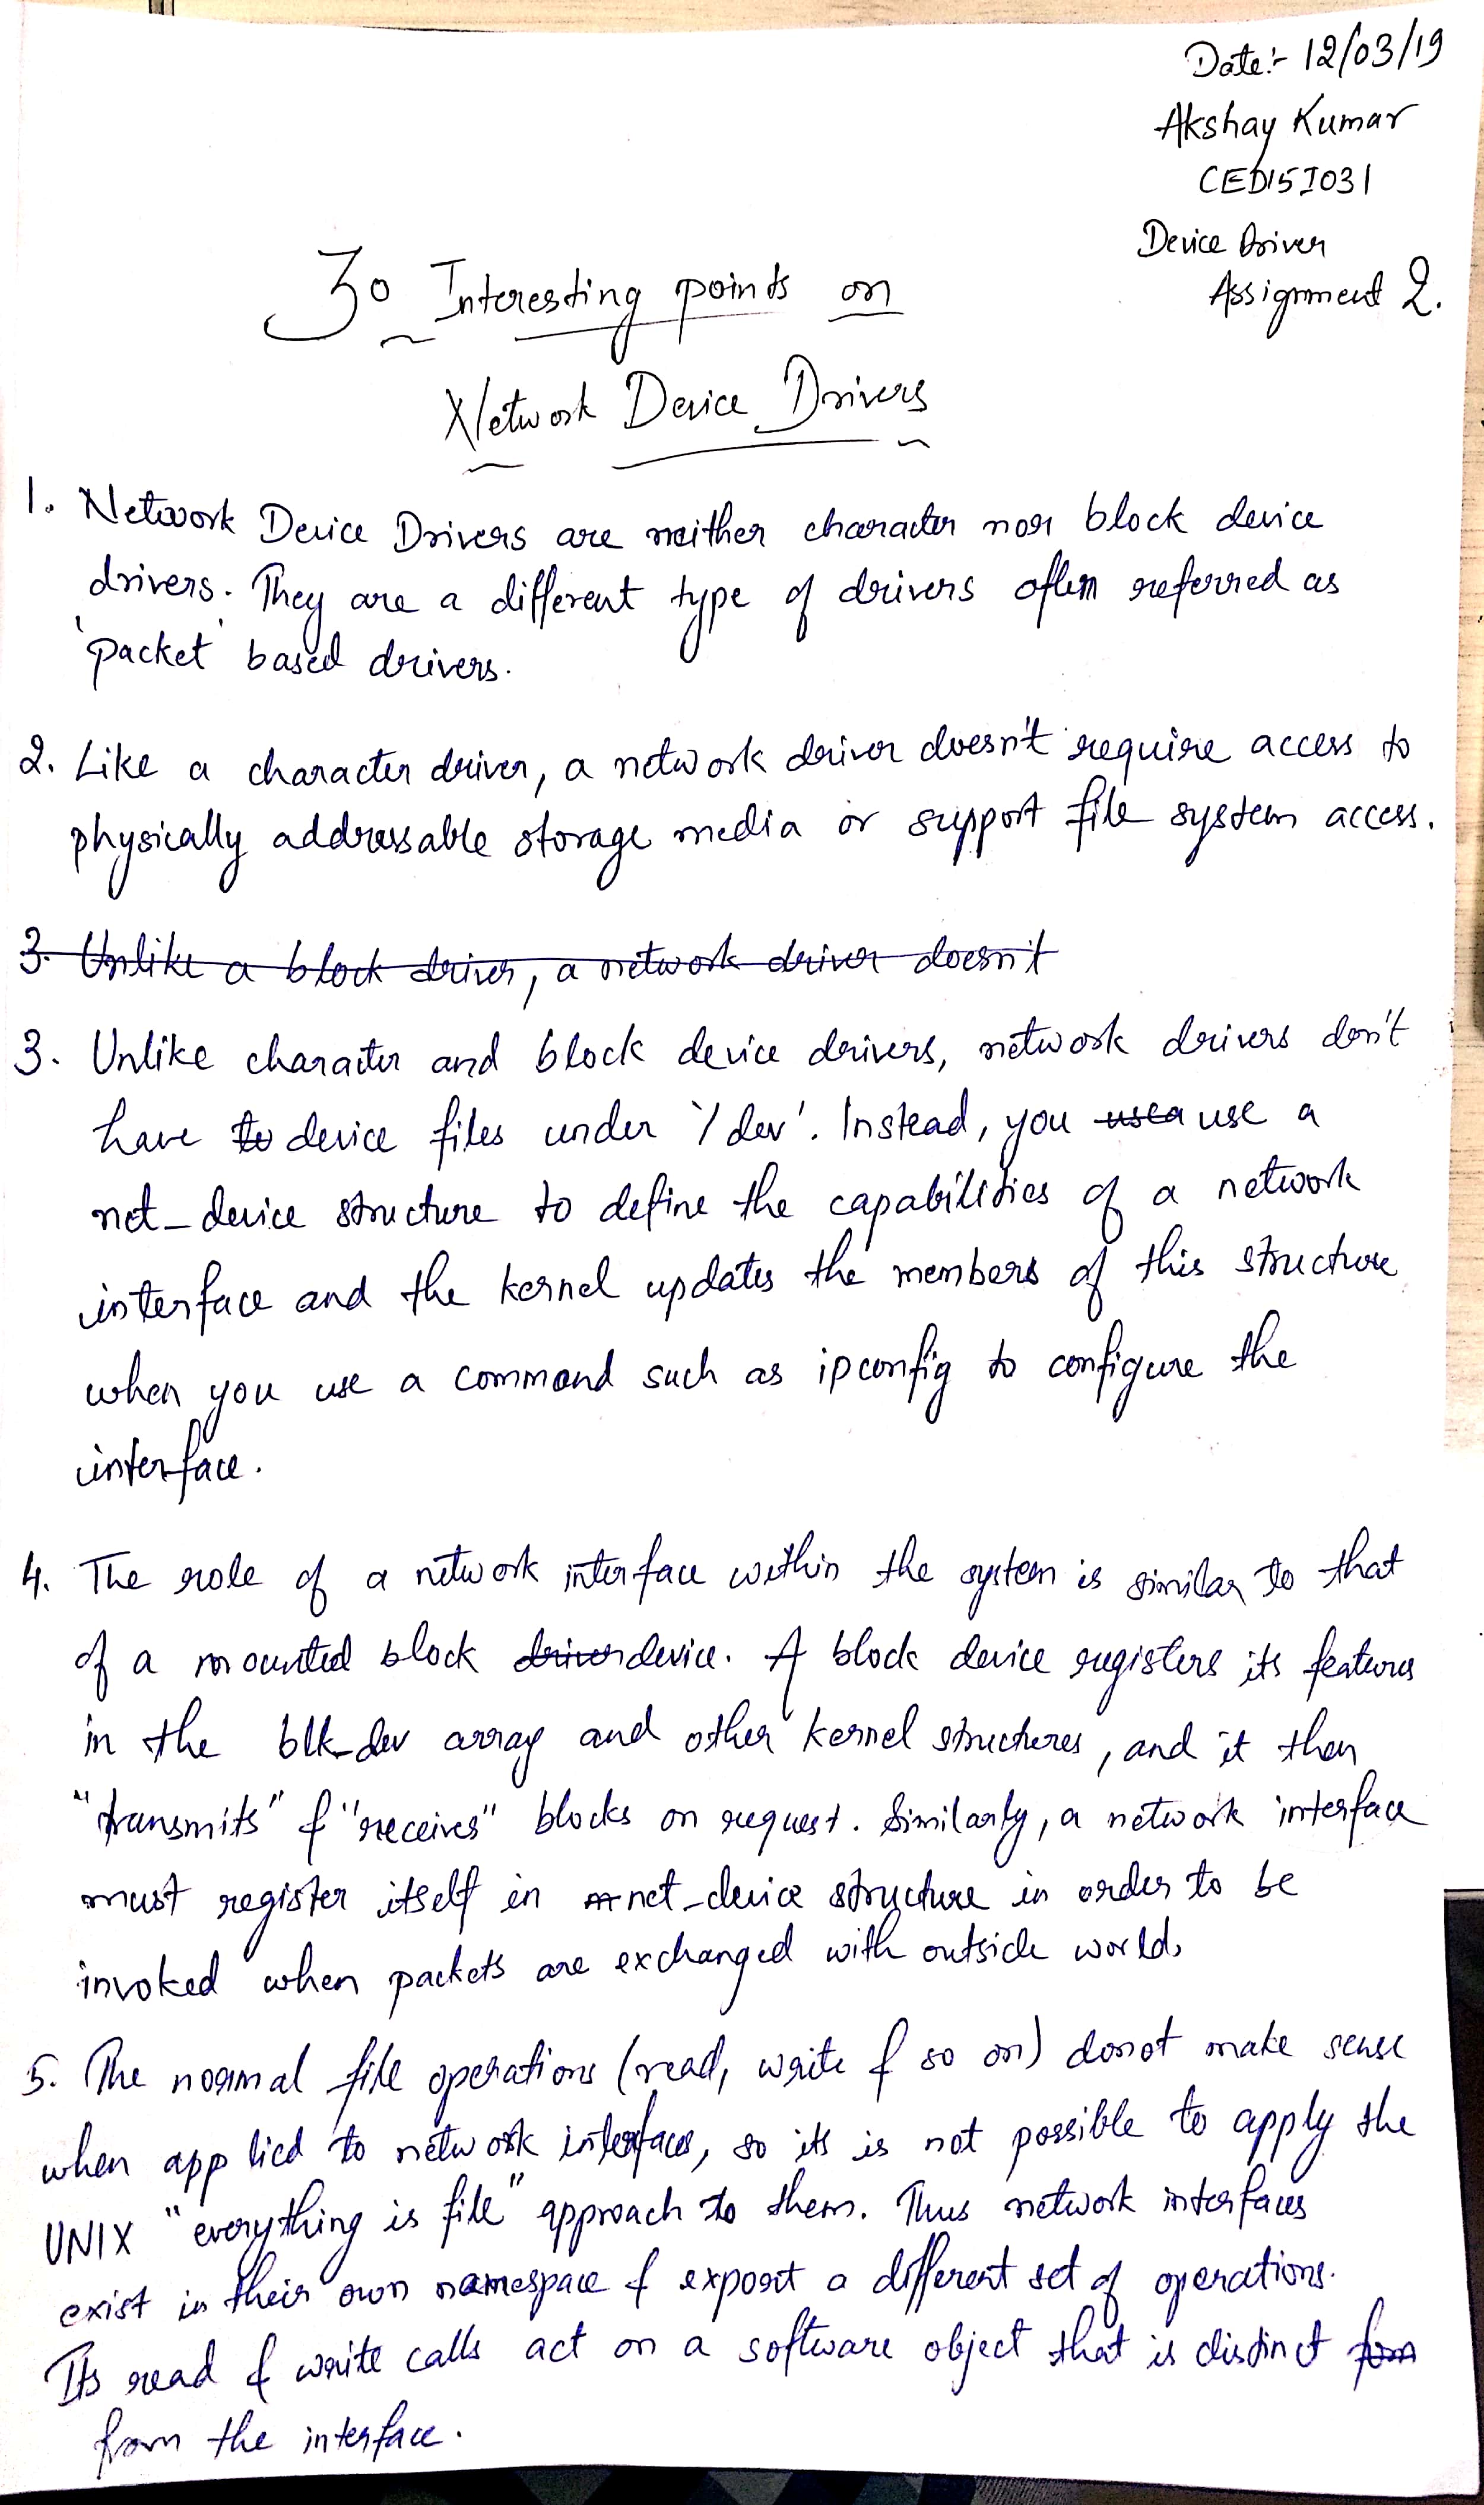 Date:- 12/03/19
Akshay Kumar
CED15I031
Device Driver
Assignment 2.
30 Interesting points on
Network Device Drivers
1. Network Device Drivers are neither character nor block device
drivers. They are a different type of drivers often referred as
'packet' based drivers.
2. Like a character driver, a network driver doesn't require access to
physically addressable storage media or support file system access.
3. Unlike a block driver, a network driver doesn't
3. Unlike character and block device drivers, network drivers don't
have to device files under '/dev'. Instead, you use a use a
net_device structure to define the capabilities of a network
interface and the kernel updates the members of this structure
when you use a command such as ipconfig to configure the
interface.
4. The role of a network interface within the system is similar to that
of a mounted block driver device. A block device registers its features
in the blk_dev array and other kernel structures, and it then
"transmits" & "receives" blocks on request. Similarly, a network interface
must register itself in net_device structure in order to be
invoked when packets are exchanged with outside world.
5. The normal file operations (read, write & so on) donot make sense
when applied to network interfaces, so its is not possible to apply the
UNIX "everything is file" approach to them. Thus network interfaces
exist in their own namespace & export a different set of operations.
Its read & write calls act on a software object that is distinct form
from the interface.